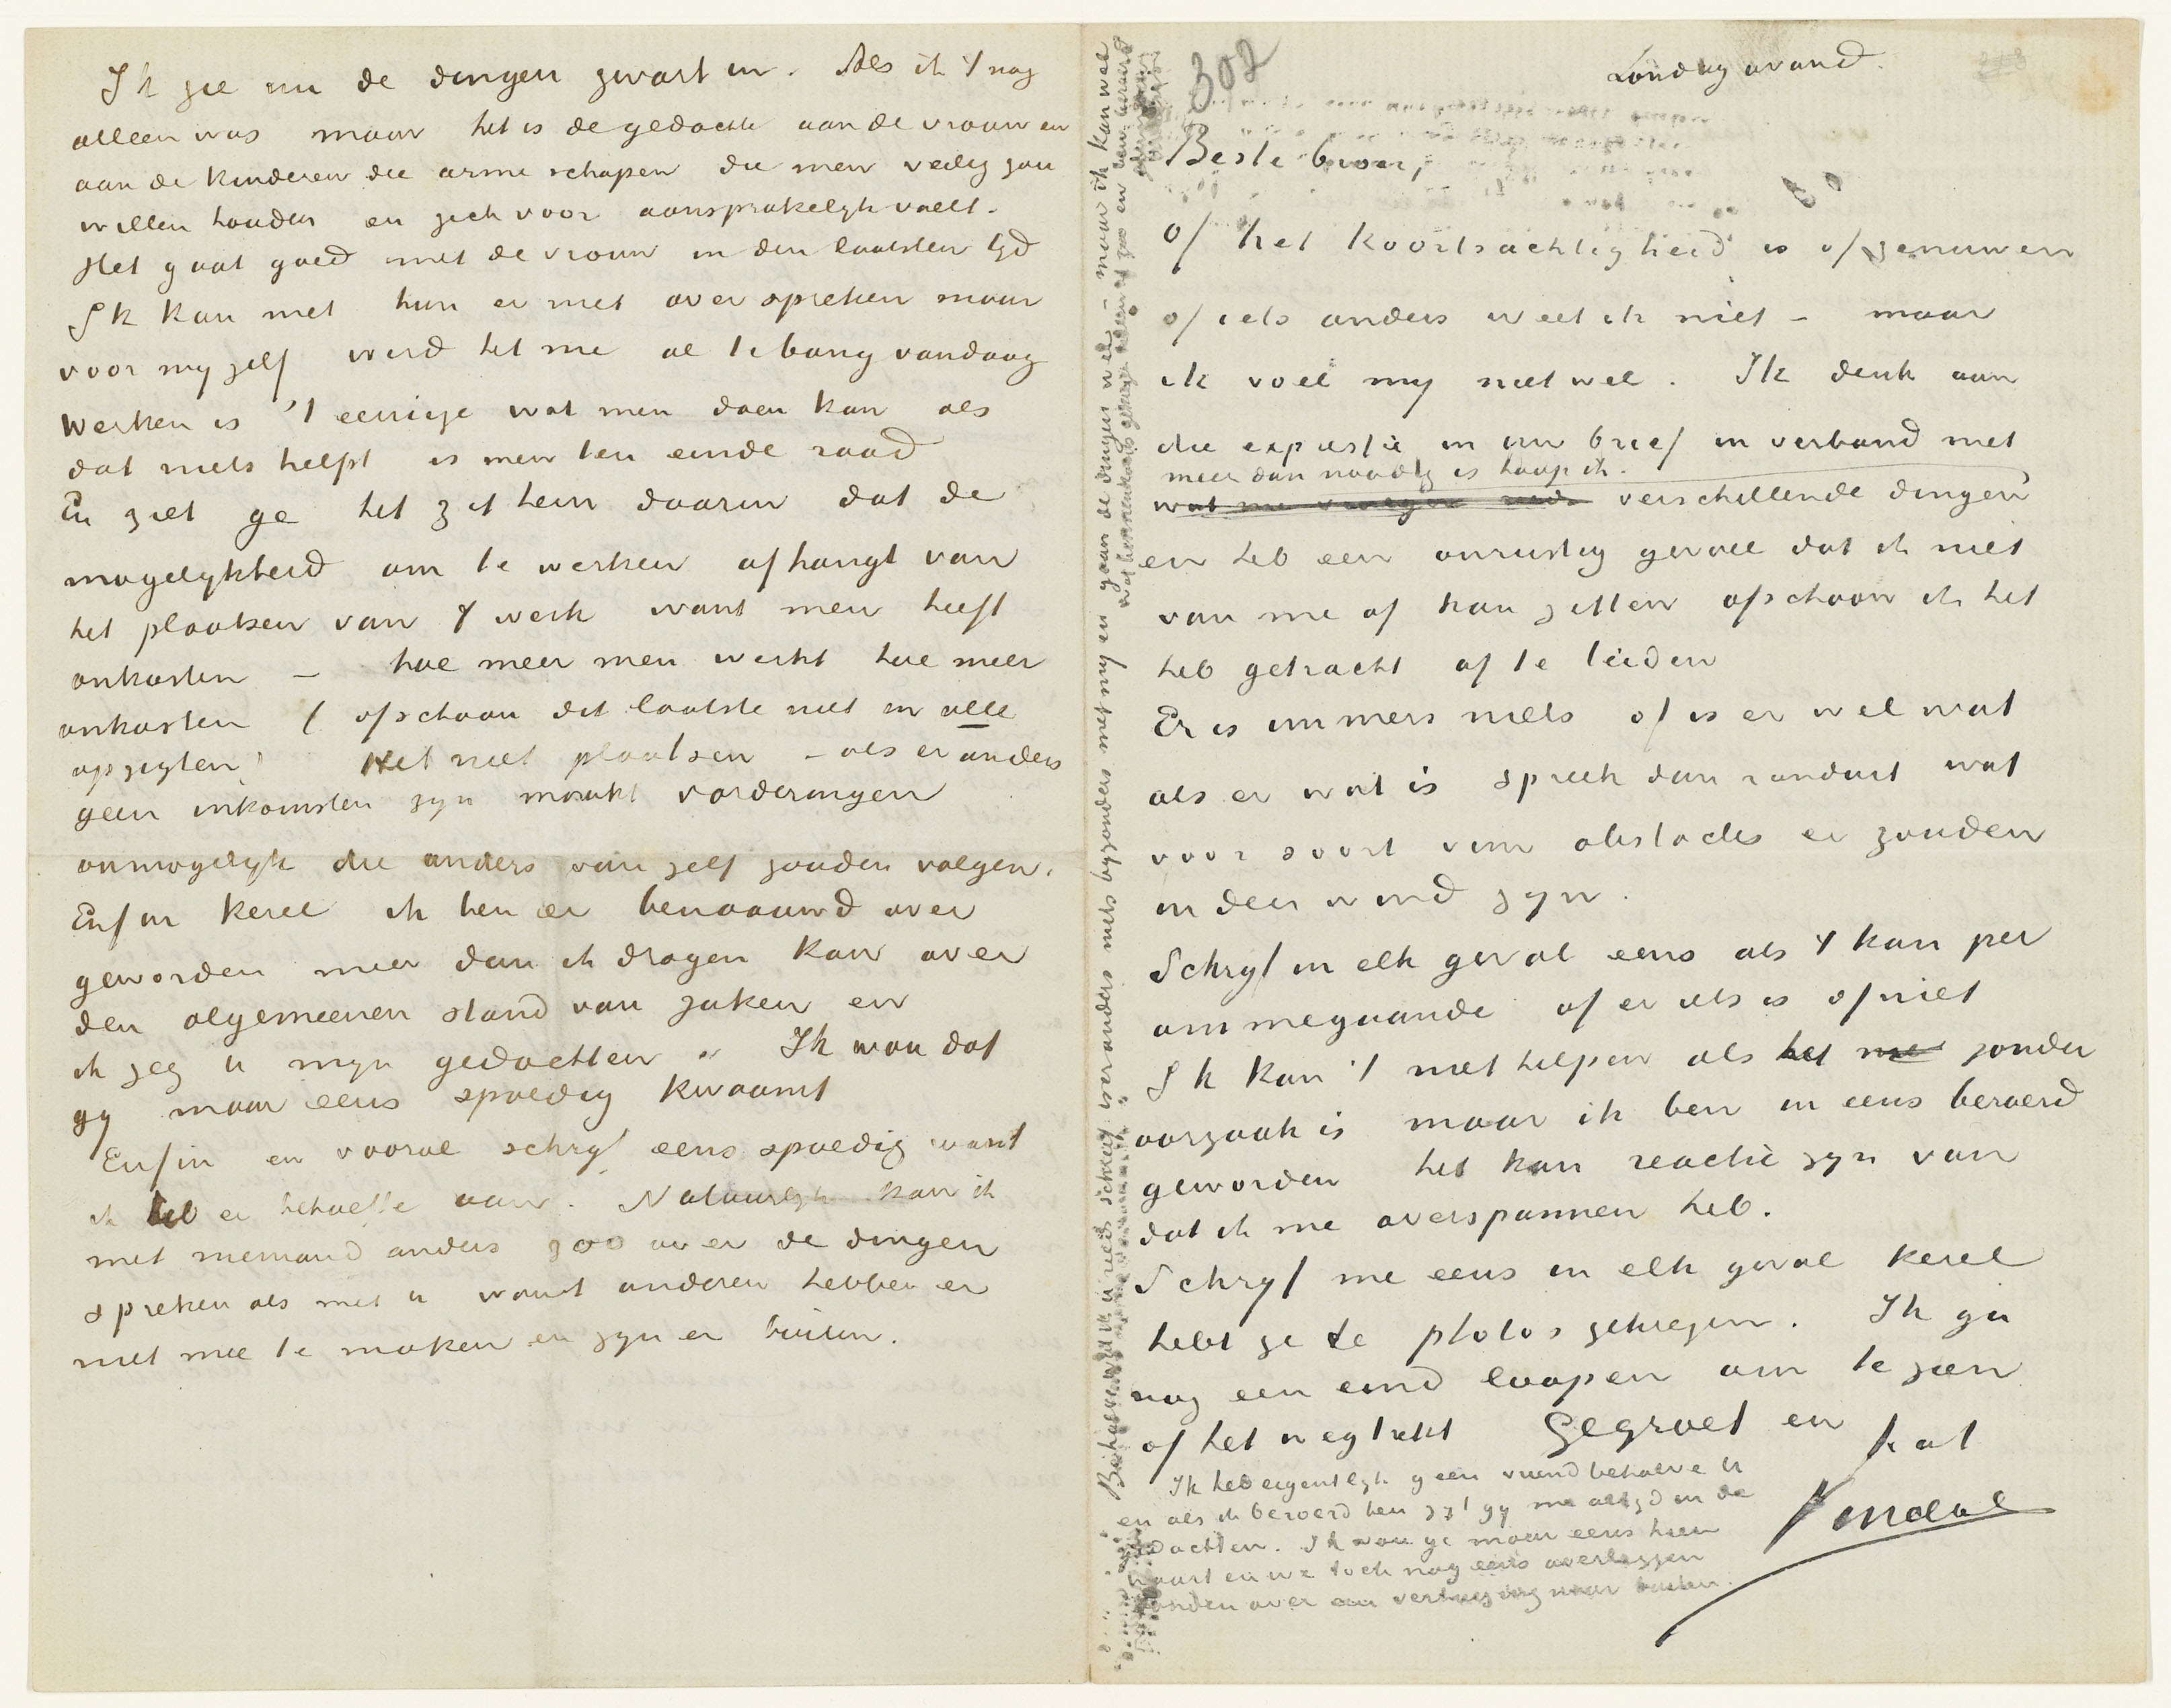 302
Zondag avond.
Beste broer,
of het koortsachtigheid is of zenuwen
of iets anders weet ik niet – maar
ik voel my niet wel. Ik denk aan
die expressie in uw brief in verband met
meer dan noodig is hoop ik.
verschillende dingen
en heb een onrustig gevoel dat ik niet
van me af kan zetten ofschoon ik het
heb getracht af te leiden
Er is immers niets of is er wel wat
als er wat is spreek dan ronduit wat
voor soort van obstacles er zouden
in den wind zyn.
Schryf in elk geval eens als 't kan per
ommegaande of er iets is of niet
Ik kan 't niet helpen als het me zonder
oorzaak is maar ik ben in eens beroerd
geworden het kan reactie zyn van
dat ik me overspannen heb.
Schryf me eens in elk geval kerel
hebt ge de photos gekregen. Ik ga
nog een eind loopen om te zien
of het wegtrekt Gegroet en
hat
Vincent
Ik heb eigentlyk geen vriend behalve U
en als ik beroerd ben zyt gy me altyd in de
gedachten. Ik wou ge maar eens hier
waart en we toch nog eens overleggen
konden over een verhuizing naar buiten.
Behalve wat ik u reeds schreef is er anders niets byzonders met my en gaan de dingen wel – maar ik kan wel
Ik zie nu de dingen zwart in. Als ik 't nog
alleen was maar het is de gedachte aan de vrouw en
aan de kinderen die arme schapen die men veilig zou
willen houden en zich voor aansprakelyk voelt.
Het gaat goed met de vrouw in den laatsten tyd
Ik kan met hun er niet over spreken maar
voor my zelf werd het me al te bang vandaag
Werken is 't eenige wat men doen kan als
dat niets helpt is men ten einde raad
En ziet ge het zit hem daarin dat de
mogelykheid om te werken afhangt van
het plaatsen van 't werk want men heeft
onkosten – hoe meer men werkt hoe meer
onkosten (ofschoon dit laatste niet in alle
opzigten) Het niet plaatsen – als er anders
geen inkomsten zyn maakt vorderingen
onmogelyk die anders van zelf zouden volgen.
Enfin kerel ik ben er benaauwd over
geworden meer dan ik dragen kan over
den algemeenen stand van zaken en
ik zeg u myn gedachten. Ik wou dat
gy maar eens spoedig kwaamt
Enfin en vooral schryf eens spoedig want
ik heb er behoefte aan. Natuurlyk kan ik
met niemand anders zoo over de dingen
spreken als met u want anderen hebben er
niet mee te maken en zyn er buiten.